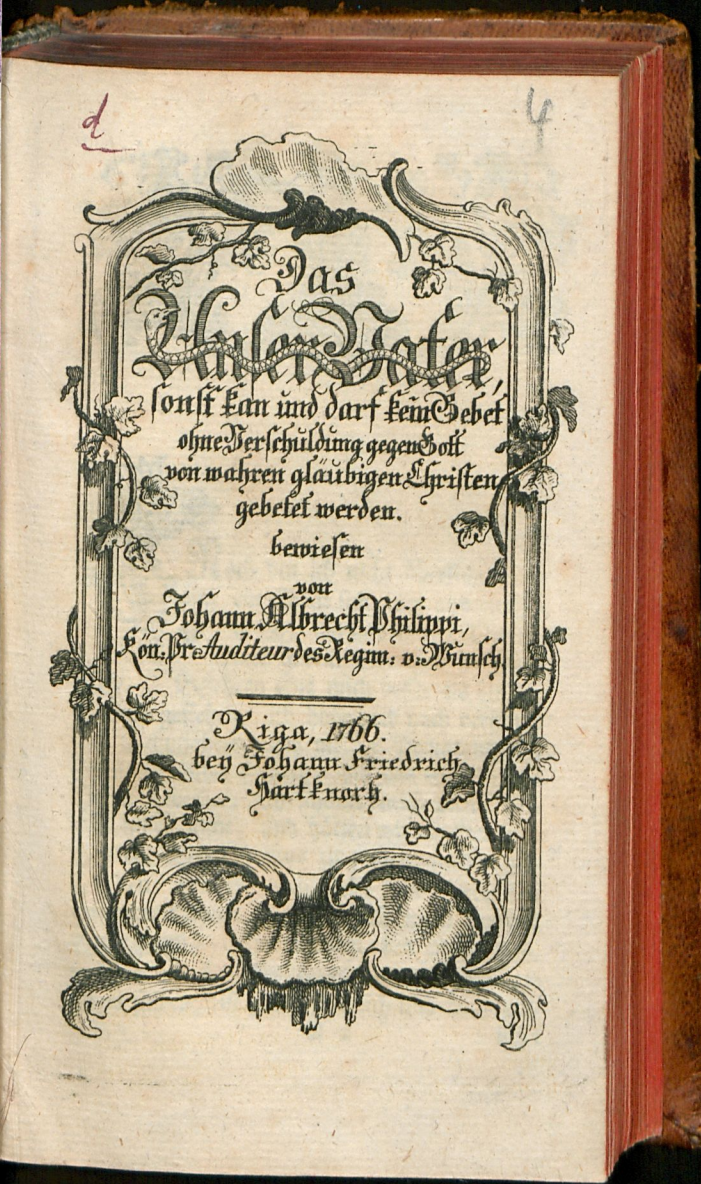 d
4
Das
Unser Vater,
sonst kan und darf kein Gebet
ohne Verschuldung gegen Gott
von wahren gläubigen Christen
gebetet werden.
bewiesen
von
Johann Albrecht Philippi,
Kön: Pr: Auditeur des Regim: v: Wunsch.
Riga, 1766.
bey Johann Friedrich
Hartknoch.